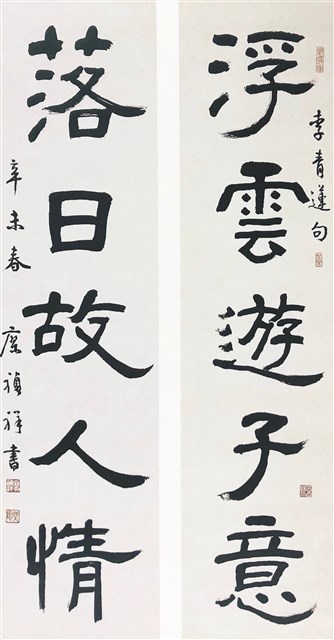 李青蓮句
浮雲遊子意
落日故人情
辛未春 廖禎祥書